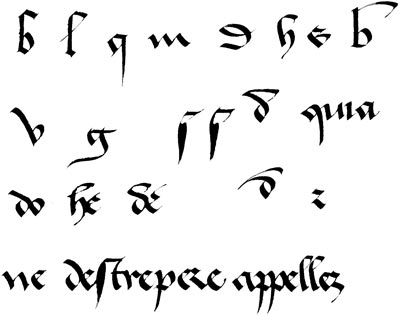 b l q m D h s b
v g ſ ſ d quia
do he de d z
ne deſtrepere appellez